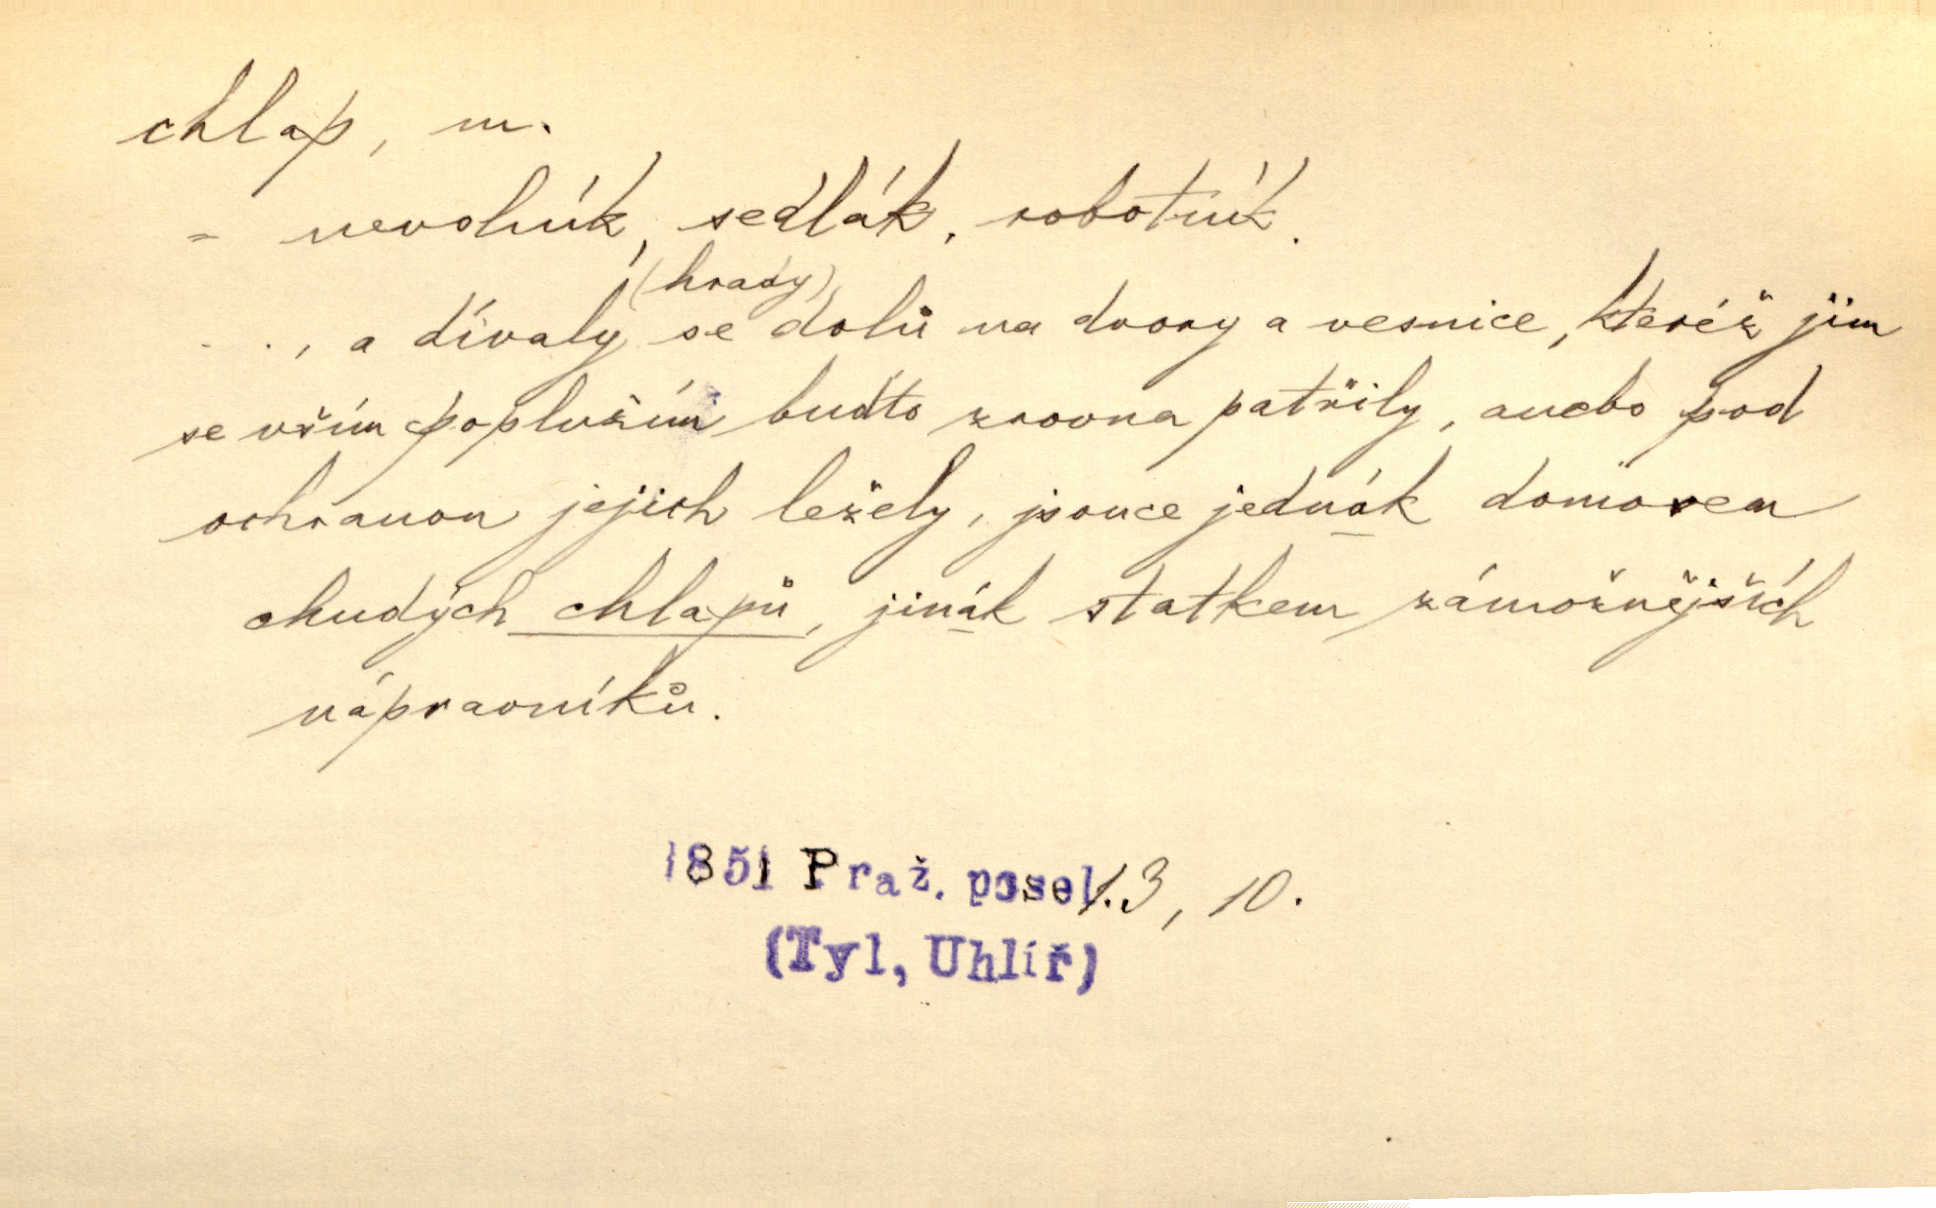 chlap, m.
= nevolník, sedlák, robotník.
(hrady)
. . ., a dívaly se dolů na dvory a vesnice, kteréž jim
se vším poplužím buďto zrovna patřily, anebo pod
ochranou jejich ležely, jsouce jednák domovem
chudých chlapů, jinák statkem zámožnějších
nápravníků.
1851 Praž. posel 1.3, 10.
(Tyl, Uhlíř)